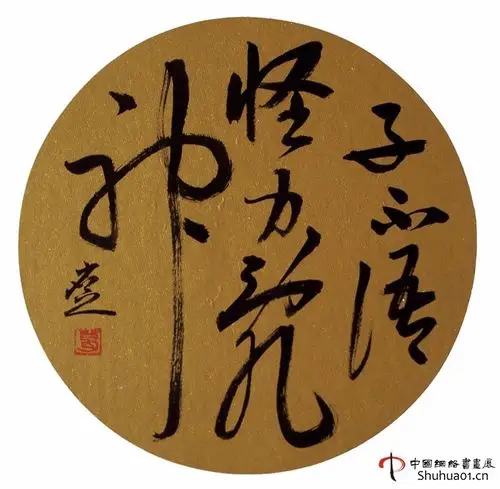 子不语
怪力乱
神
中國網絡書畫展
Shuhua01.cn